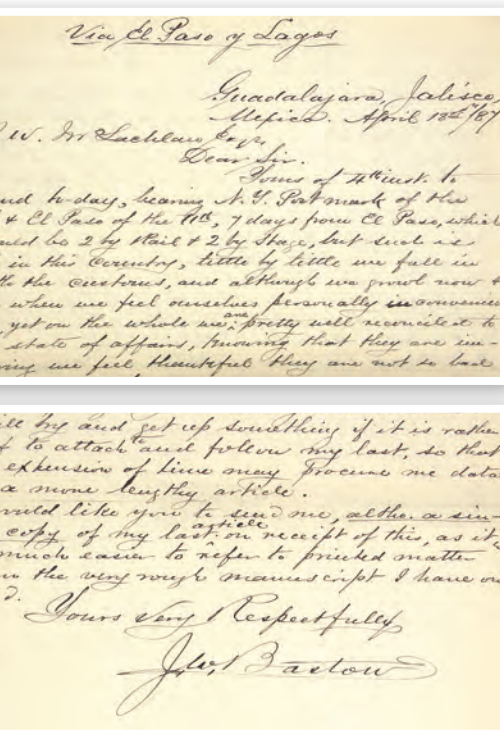 Via El Paso y Lagos
Guadalajara, Jalisco
Mexico. April 18th/87
W. Mc Lachlan Esqr,
Dear Sir.
Yours of 4th inst. to
nd to-day, bearing N.Y. Post mark of the
& El Paso of the 11th, 7 days from El Paso, which
uld be 2 by Rail & 2 by Stage, but such is
in this Country, little by little we fall in
th the customs, and although we growl now &
when we feel ourselves personally inconvenienc
yet on the whole we are pretty well reconciled to
state of affairs, knowing that they are im-
ving we feel thankful they are not so bad
ill try and get up something if it is rather
f to attach to and follow my last, so that
expension of time may procure me data
a more lengthy article.
ould like you to send me, altho. a sin-
copy of my last article on receipt of this, as it is
much easier to refer to printed matter
n the very rough manuscript I have on
d.
Yours very Respectfully
J.W. Bastow